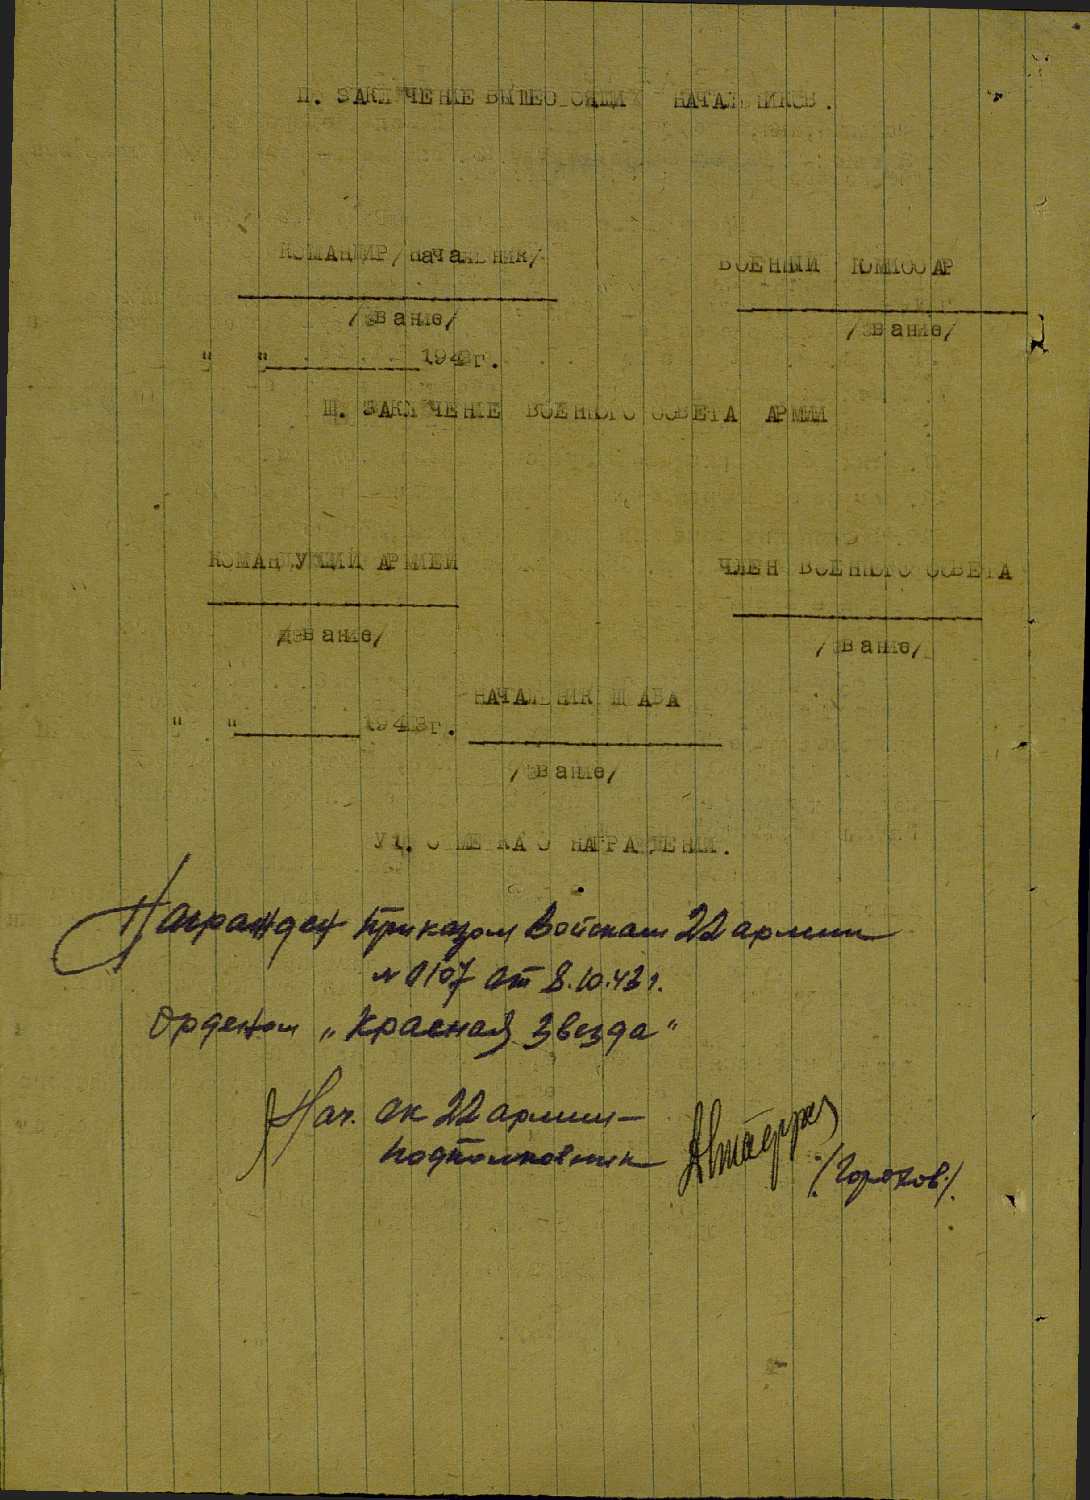 II. ЗАКЛЮЧЕНИЕ ВЫШЕСТОЯЩИХ НАЧАЛЬНИКОВ.
КОМАНДИР /начальник/ ВОЕННЫЙ КОМИССАР
/звание/ /звание/
" " 194 г.
Ш. ЗАКЛЮЧЕНИЕ ВОЕННОГО СОВЕТА АРМИИ
КОМАНДУЮЩИЙ АРМИЕЙ ЧЛЕН ВОЕННОГО СОВЕТА
/звание/ /звание/
НАЧАЛЬНИК ШТАБА
" " 1943г.
/звание/
У1. ОТМЕТКА О НАГРАЖДЕНИИ.
Награжден приказом Войскам 22 армии
№ 0107 от 8.10.43 г.
Орденом „Красная Звезда"
Нач. ок 22 армии –
подполковник
/Горохов/.